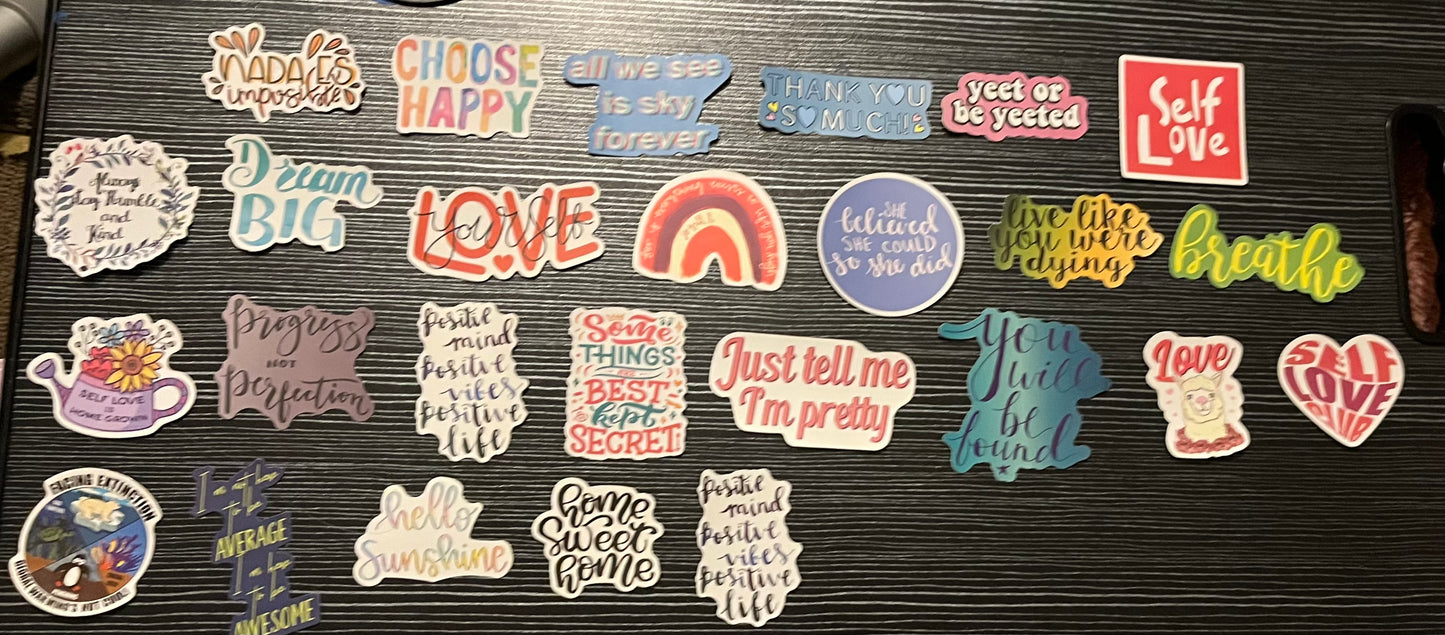 NADA ES
imposible
CHOOSE
HAPPY
all we see
is sky
forever
THANK YOU
SO MUCH!
yeet or
be yeeted
Self
Love
Always
Stay Humble
and
Kind
Dream
BIG
LOVE
yourself
SHE
believed
SHE COULD
so she did
live like
you were
dying
breathe
SELF LOVE
IS
HOME GROWN
progress
NOT
perfection
positive
mind
positive
vibes
positive
life
Some
THINGS
ARE
BEST
kept
SECRET
Just tell me
I'm pretty
you
will
be
found
Love
SELF
LOVE
CLUB
FACING EXTINCTION
GLOBAL WARMING'S NOT COOL!
I'm not here
to be
AVERAGE
I'm here
to be
AWESOME
hello
Sunshine
home
sweet
home
positive
mind
positive
vibes
positive
life